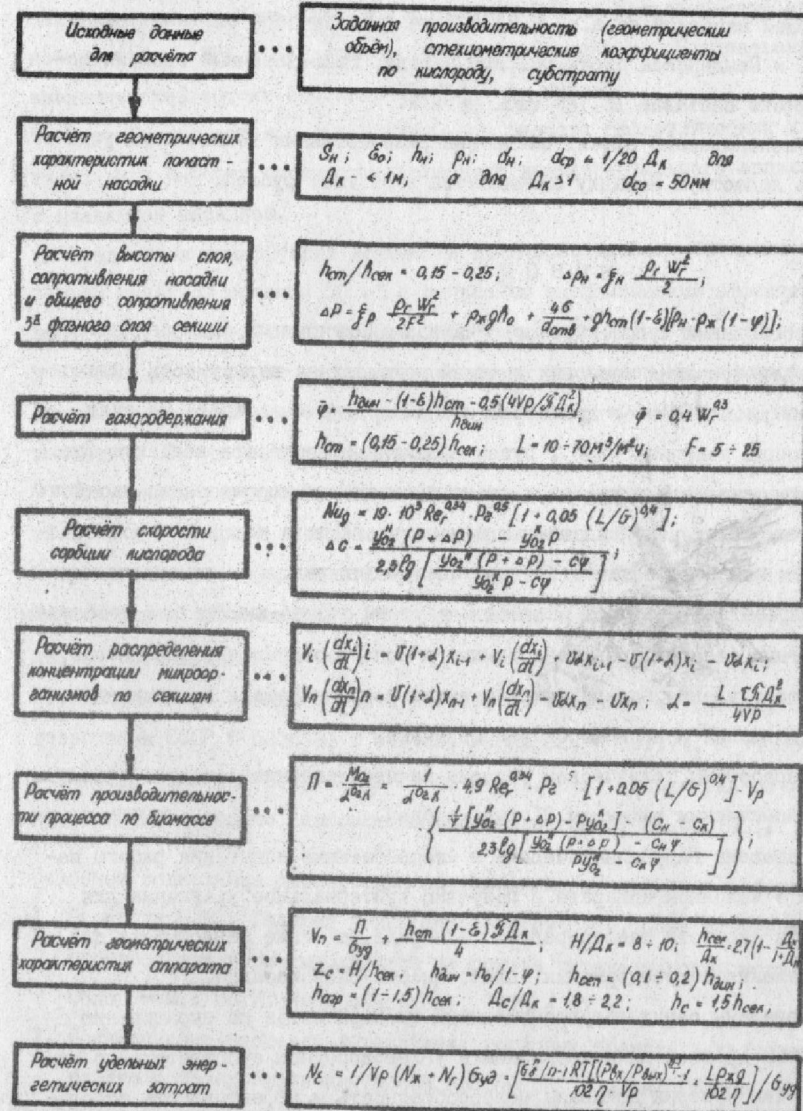 Исходные данные
для расчёта
Заданная производительность (геометрический
объём), стехиометрические коэффициенты
по кислороду, субстрату
Расчёт геометрических
характеристик лопаст-
ной насадки
Sн; Ɛо; hн; ρн; dн; dср = 1/20 Дк для
Дк < 1м, а для Дк > 1 dср = 50мм
Расчёт высоты слоя,
сопротивления насадки
и общего сопротивления
3х фазного слоя секции
hст/hсек = 0,15 - 0,25; Δpн = ξн ρг Wг²/2;
ΔP = ξр ρг Wг²/2F² + ρж gh₀ + 4σ/ρотв + ghст (1-Ɛ)[ρн - ρж (1-φ)];
Расчёт газосодержания
φ̄ = hдин - (1-Ɛ)hст - 0,5(4Vр/πДк²)/hдин φ̄ = 0,4 Wг
hст = (0,15 - 0,25) hсек; L = 10 ÷ 70 м³/м²ч; F = 5 ÷ 25
Расчёт скорости
сорбции кислорода
Nuд = 19 · 10³ Reг · Pг [1 + 0,05 (L/G)^0,4];
Δc = yо₂ᴴ (P + ΔP) - yо₂ᴷ P
2,3 lg [yо₂ᴴ (P + ΔP) - cφ / yо₂ᴷ P - cφ];
Расчёт распределения
концентрации микроор-
ганизмов по секциям
Vi (dxi/dt) i = υ(1+α) xi-1 + Vi (dxi/dt) - υαxi+1 - υ(1+α)xi - υαxi;
Vn (dxn/dt) n = υ(1+α) xn-1 + Vn (dxn/dt) - υαxn - υxn; α = L τπДк²/4Vр
Расчёт производительнос-
ти процесса по биомассе
П = Mо₂/αо₂x = 1/αо₂x · 4,9 Reг · Pг [1 + 0,05 (L/G)^0,4] · Vр
{1/φ [yо₂ᴴ (P + ΔP) - Pyо₂ᴷ] - (cн - cк) / 2,3 lg [yо₂ᴴ (P + ΔP) - cнφ / Pyо₂ᴷ - cкφ]};
Расчёт геометрических
характеристик аппарата
Vп = П/Gуд + hст (1-Ɛ)πДк/4; H/Дк = 8 ÷ 10; hсек/Дк = 2,7(1-
zс = H/hсек; hдин = h₀/1-φ; hсеп = (0,1 ÷ 0,2) hдин;
hогр = (1 ÷ 1,5) hсек; Дс/Дк = 1,8 ÷ 2,2; hс = 1,5 hсек,
Расчёт удельных энер-
гетических затрат
Nс = 1/Vр (Nж + Nг) Gуд = / 102 η Vр + Lρжg/102 η] / Gуд